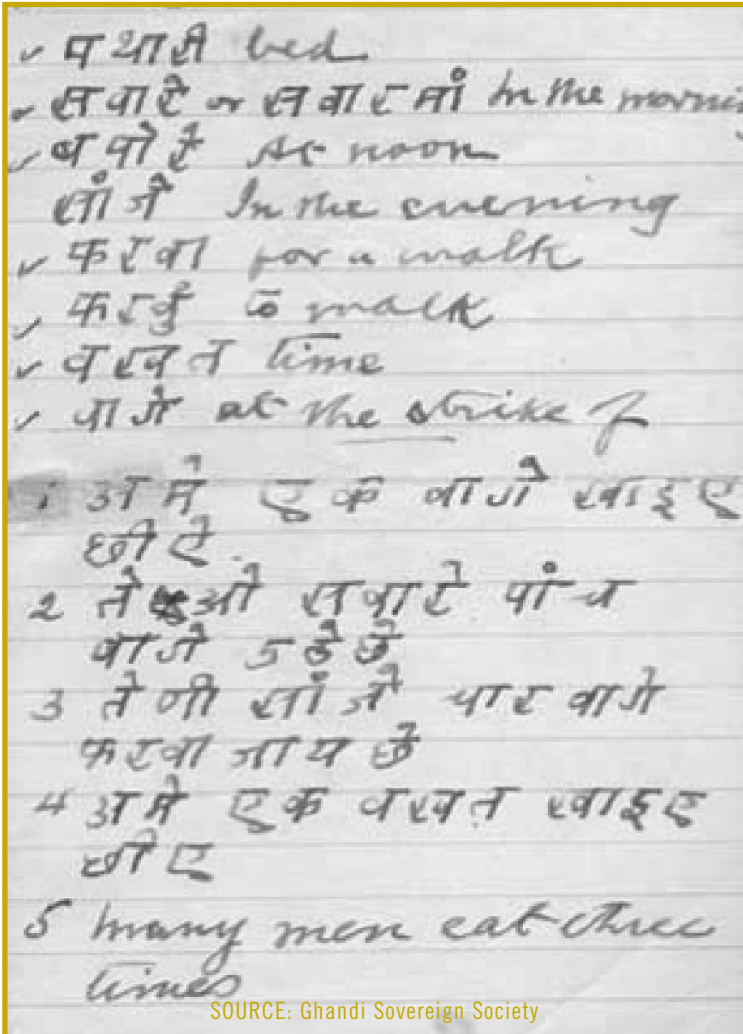 ✓ पथारी bed
✓ सवारे or सवारमां In the morni
✓ बपोरे At noon
सांजे In the evening
✓ फरवा for a walk
✓ फरवुं to walk
✓ वखत time
✓ वागे at the strike of
1 अमे एक वागे खाइए
छीऐ.
2 तेओ सवारे पांच
वागे उठे छे
3 तेणी सांजे चार वागे
फरवा जाय छे
4 अमे एक वखत खाइए
छीए
5 many men eat three
times
SOURCE: Ghandi Sovereign Society